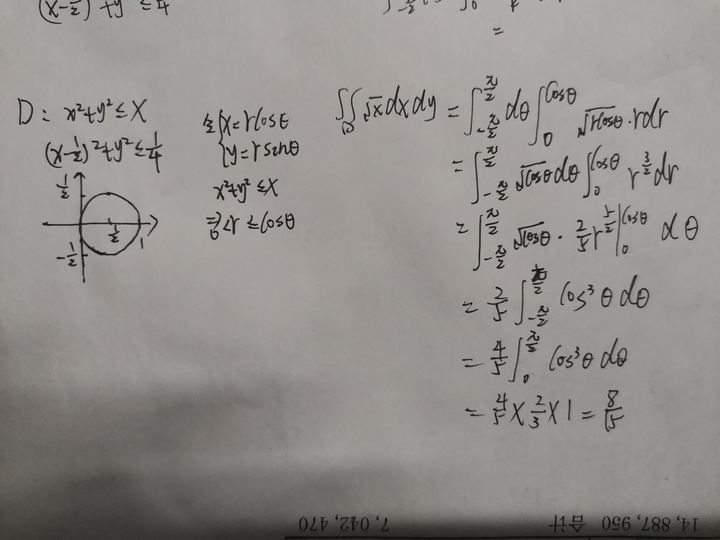 (x-½)²+y²≤¼
=
D: x²+y²≤x
(x-½)²+y²≤¼
½
-½
½
1
令{x=rcosθ
{y=rsinθ
x²+y²≤x
⇒0<r≤cosθ
∬_D √x dxdy = ∫_{-π/2}^{π/2} dθ ∫_0^{cosθ} √(rcosθ)·rdr
= ∫_{-π/2}^{π/2} √cosθ dθ ∫_0^{cosθ} r^{3/2} dr
= ∫_{-π/2}^{π/2} √cosθ · ⅖ r^{5/2} |_0^{cosθ} dθ
= ⅖ ∫_{-π/2}^{π/2} cos³θ dθ
= ⅘ ∫_0^{π/2} cos³θ dθ
= ⅘ × ⅔ × 1 = 8/15
14,887,950 合计 7,042,470